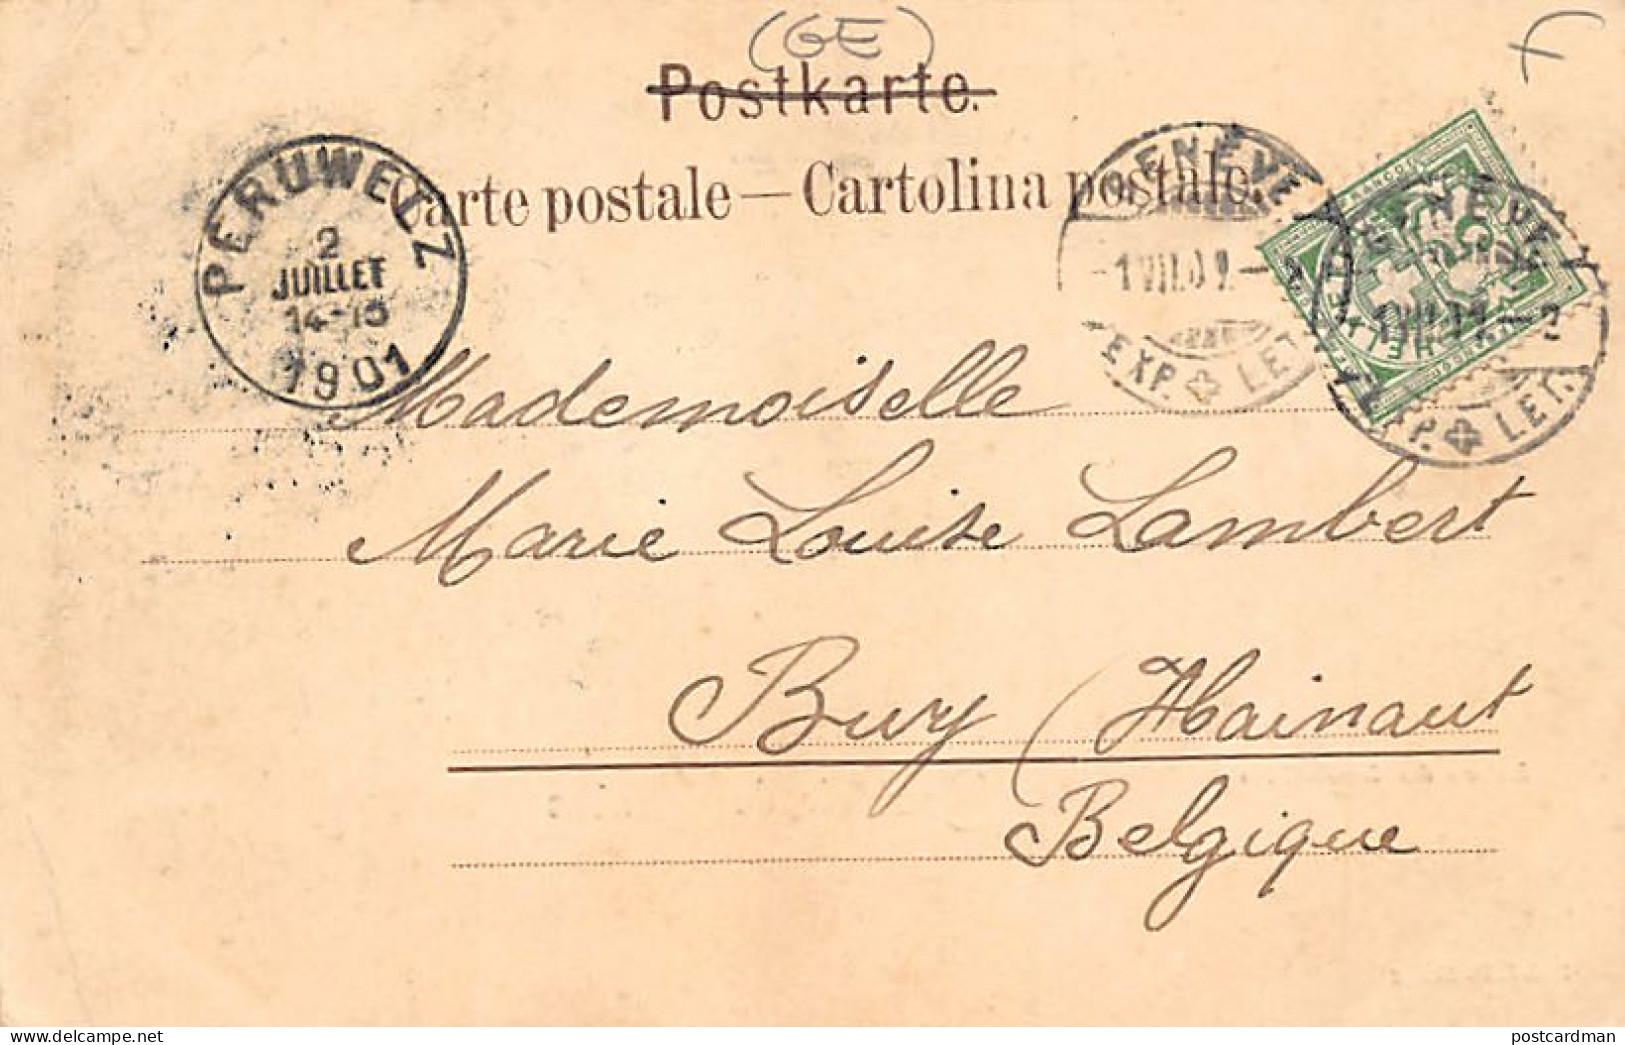 (GE)
Postkarte.
Carte postale — Cartolina postale.
PERUWELZ
2
JUILLET
14-15
1901
GENÈVE
-1 VII.01.-
EXP. LET.
GENÈVE
1 VII.01.-2
EXP. LET.
FRANCO
HELVETIA
Mademoiselle
Marie Louise Lambert
Bury (Hainaut
Belgique
www.delcampe.net
postcardman